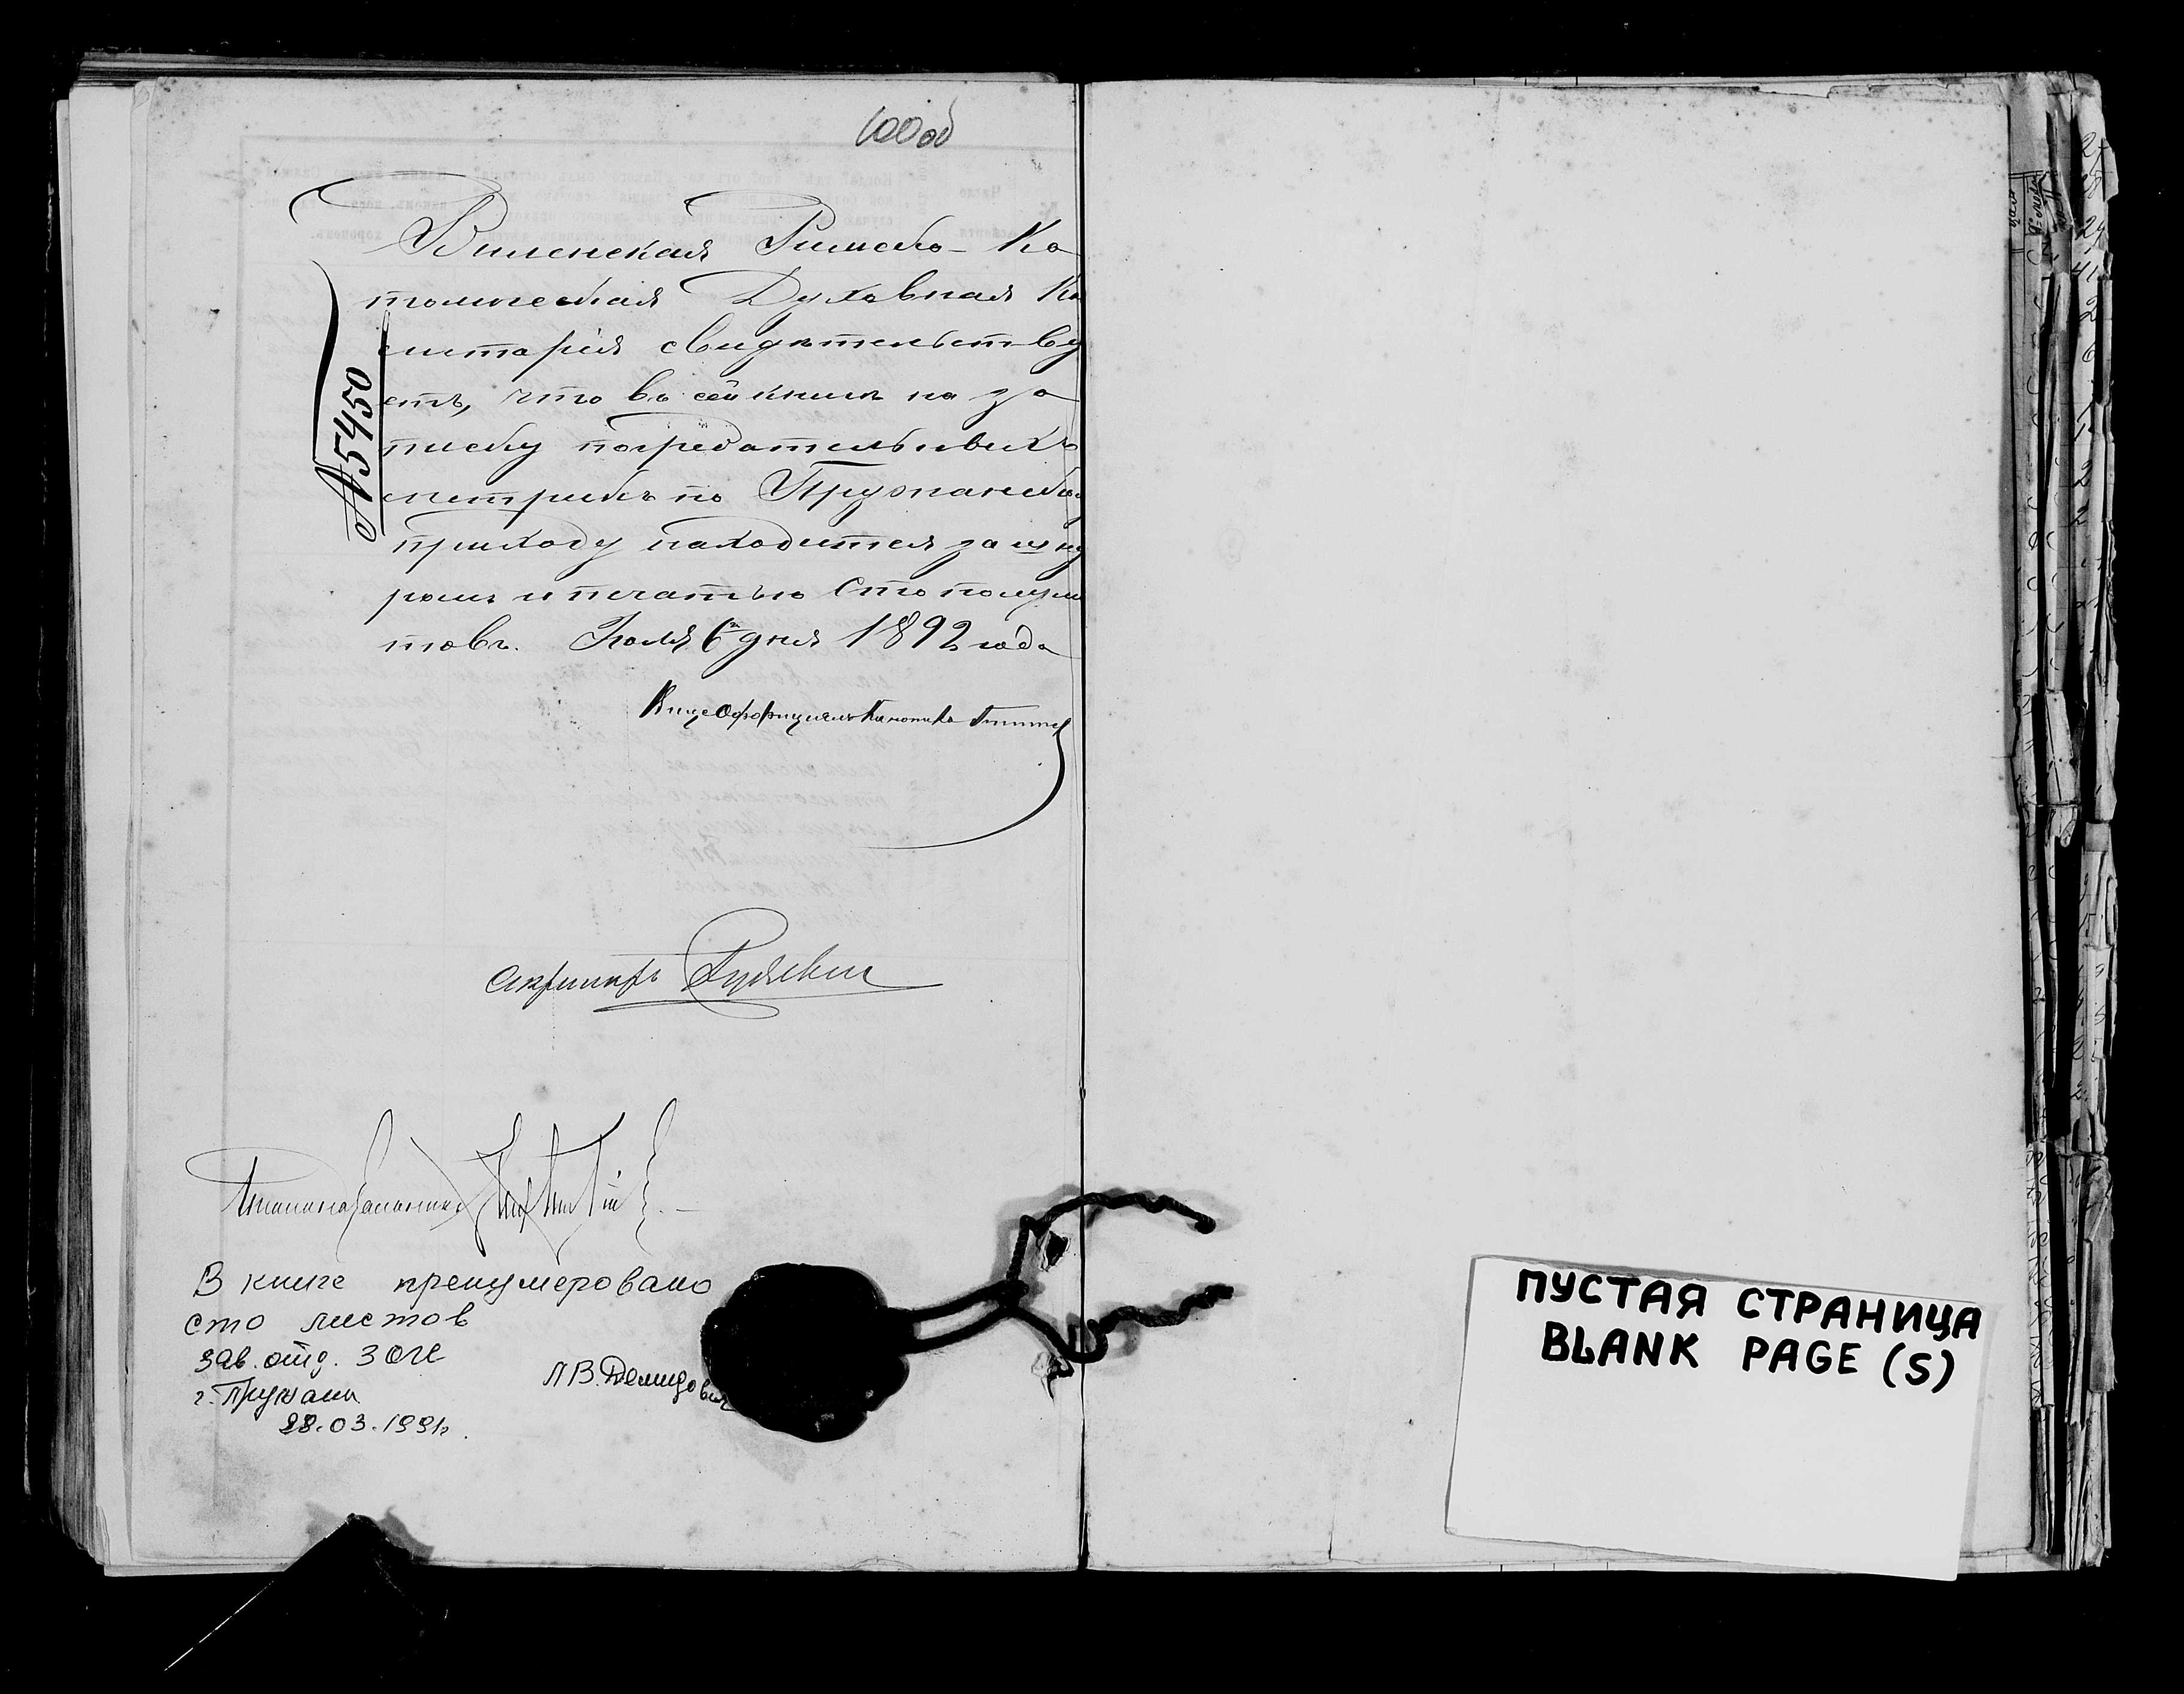 100 об
Виленская Римско-Ка
толическая Духовная Ко
нсисторія свидѣтельству
етъ, что въ сей книгѣ на за
писку погребательныхъ
метрикъ по Пружанскому
приходу находится за шну
ромъ и печатью сто полулис
товъ. Іюля 6 дня 1892 года
№5450
ВицеОффиціалъ Каноникъ
Секретарь
В книге пренумеровано
сто листов
зав. отд. ЗАГС
г. Пружаны
Л В. Демидович
28.03.1991г.
ПУСТАЯ СТРАНИЦА
BLANK PAGE (S)